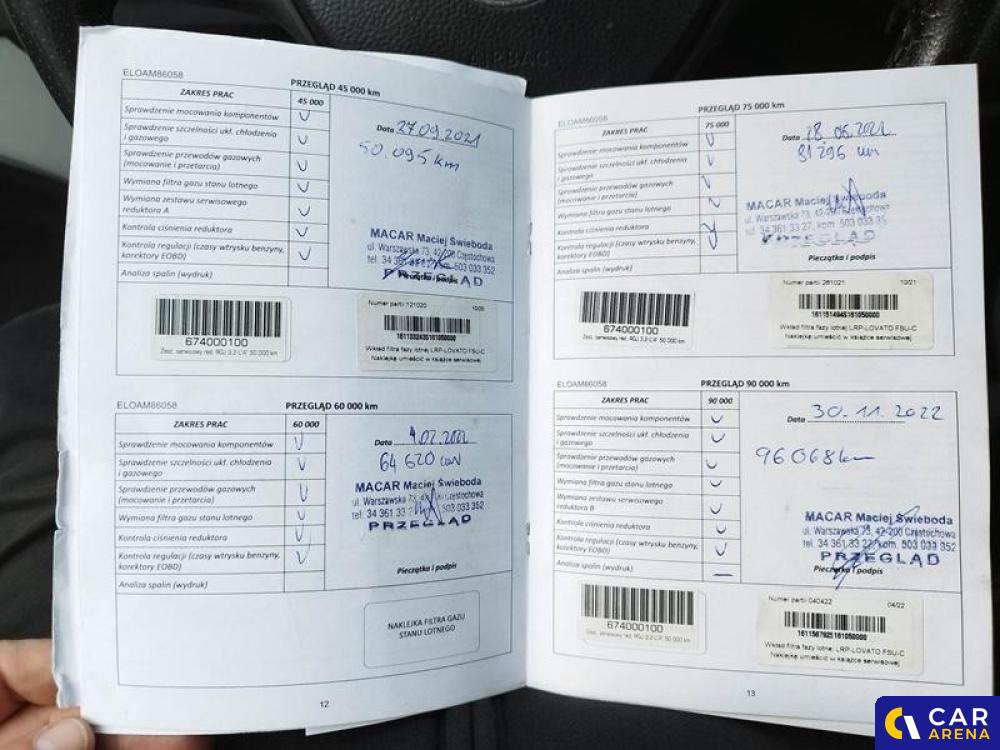 AIRBAG
ELOAM86058
PRZEGLĄD 45 000 km
ZAKRES PRAC
45 000
Sprawdzenie mocowania komponentów
Sprawdzenie szczelności ukł. chłodzenia
i gazowego
Sprawdzenie przewodów gazowych
(mocowanie i przetarcia)
Wymiana filtra gazu stanu lotnego
Wymiana zestawu serwisowego
reduktora A
Kontrola ciśnienia reduktora
Kontrola regulacji (czasy wtrysku benzyny,
korektory EOBD)
Analiza spalin (wydruk)
Data 27.09.2021
50.095 km
MACAR Maciej Świeboda
ul. Warszawska 73, 42-200 Częstochowa
tel. 34 361 33 27, kom. 503 033 352
PRZEGLĄD
Pieczątka i podpis
674000100
Zest. serwisowy red. RGJ 3.2-L'A' 50 000 km
Numer partii 121020 10/20
Wkład filtra fazy lotnej LRP-LOVATO FSU-C
Naklejkę umieścić w książce serwisowej
ELOAM86058
PRZEGLĄD 60 000 km
ZAKRES PRAC
60 000
Sprawdzenie mocowania komponentów
Sprawdzenie szczelności ukł. chłodzenia
i gazowego
Sprawdzenie przewodów gazowych
(mocowanie i przetarcia)
Wymiana filtra gazu stanu lotnego
Kontrola ciśnienia reduktora
Kontrola regulacji (czasy wtrysku benzyny,
korektory EOBD)
Analiza spalin (wydruk)
Data
64 620 km
MACAR Maciej Świeboda
ul. Warszawska 73, 42-200 Częstochowa
tel. 34 361 33 27, kom. 503 033 352
PRZEGLĄD
Pieczątka i podpis
NAKLEJKA FILTRA GAZU
STANU LOTNEGO
12
ELOAM86058
PRZEGLĄD 75 000 km
ZAKRES PRAC
75 000
Sprawdzenie mocowania komponentów
Sprawdzenie szczelności ukł. chłodzenia
i gazowego
Sprawdzenie przewodów gazowych
(mocowanie i przetarcia)
Wymiana filtra gazu stanu lotnego
Kontrola ciśnienia reduktora
Kontrola regulacji (czasy wtrysku benzyny,
korektory EOBD)
Analiza spalin (wydruk)
Data
81 296 km
MACAR Maciej Świeboda
ul. Warszawska 73, 42-200 Częstochowa
tel. 34 361 33 27, kom. 503 033 35
PRZEGLĄD
Pieczątka i podpis
674000100
Zest. serwisowy red. RGJ 3.2-L'A' 50 000 km
Numer partii 281021 10/21
1611514945161050000
Wkład filtra fazy lotnej LRP-LOVATO FSU-C
Naklejkę umieścić w książce serwisowej
ELOAM86058
PRZEGLĄD 90 000 km
ZAKRES PRAC
90 000
Sprawdzenie mocowania komponentów
Sprawdzenie szczelności ukł. chłodzenia
i gazowego
Sprawdzenie przewodów gazowych
(mocowanie i przetarcia)
Wymiana filtra gazu stanu lotnego
Wymiana zestawu serwisowego
reduktora B
Kontrola ciśnienia reduktora
Kontrola regulacji (czasy wtrysku benzyny,
korektory EOBD)
Analiza spalin (wydruk)
Data 30.11.2022
96068 km
MACAR Maciej Świeboda
ul. Warszawska 73, 42-200 Częstochowa
tel. 34 361 33 27, kom. 503 033 352
PRZEGLĄD
Pieczątka i podpis
674000100
Zest. serwisowy red. RGJ 3.2-L'A' 50 000 km
Numer partii 040422 04/22
1611567925161050000
Wkład filtra fazy lotnej LRP-LOVATO FSU-C
Naklejkę umieścić w książce serwisowej
13
CAR
ARENA